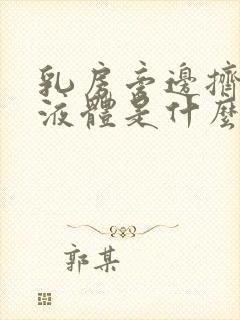 乳房旁邊擠
液體是什麼
郭某